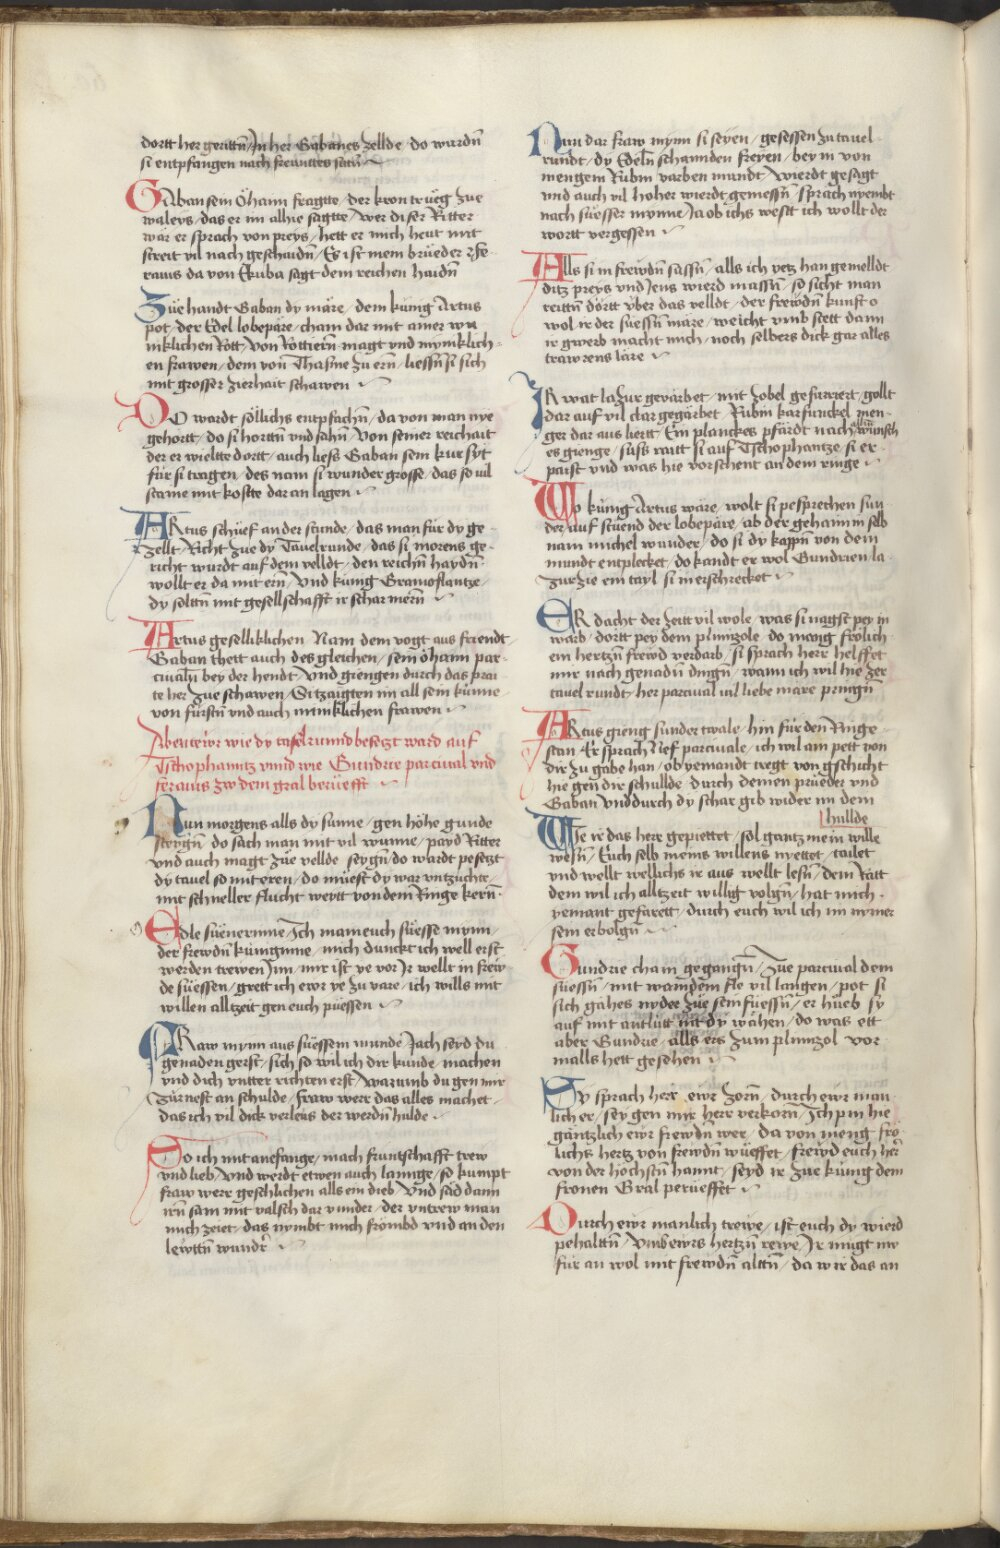 dortt her gerittn̄ Jn her Gabanes zellde do wurdn̄
si entpfangen nach frewntes satn̄
GAban sein Öham fragtte der kron trueg zue
waleys das er im alhie sagtte wer diser Ritter
wär er sprach von preys hett er mich heut mit
streit vil nach geschaidn̄ Es ist mein brüeder Fe
rauis da von Ekuba sagt dem reichen haidn̄
Zue handt Gaban dy märe dem kunig Artus
pot der Edel lobepäre cham dar mit ainer
niklichen Rott von Rottiern magt vnd mynniklich
en frawen dem von Thasme zu ern̄ liessn̄ si sich
mit grosser zierhait schawen
DO wardt söllichs entpfachn̄ da von man nye
gehortt do si hortn̄ vnd sahn̄ Von seiner reichait
der er wieltte dortt auch liess Gaban sein kursyt
für si tragen des nam si wunder grosse das so vil
staine mit kostte daran lagen
ARtus schuef an der stunde das man für dy ge
zellt Richt zue dy Tauelrunde das si morens ge
richt wurdt auf dem velldt den reichn̄ haydn̄
wollt er da mit ern̄ Vnd kunig Gramoflantze
dy soltn̄ mit gesellschafft ir schar mern̄
Artus geselliklichen Nam dem vogt aus friendt
Gaban thett auch des gleichen sein öham par
ciualn̄ bey der hendt Vnd giengen durch das prai
te her zue schawen Si tzaigten im all sein kunne
von fürstn̄ vnd auch minniklichen frawen
Abentewr wie dy tafelrunnd besetzt ward auf
Tschophanntz vnnd wie Gundrie parciual vnd
feraüis zw dem gral berüefft
Nun morgens alls dy sunne gen höhe gunde
steygn̄ do sach man mit vil wunne payd Ritter
vnd auch magt züe vellde seygn̄ do wardt pesetzt
dy tauel so mit eren do müest dy war vntzuchte
mit schneller flucht weytt von dem Ringe kern̄
Edle süenerinne Ich main euch süesse mynn
der frewdn̄ kuniginne mich dunckt ich well erst
werden trewen Inn mir ist ye vor Ir wellt in frew
de süessen grett ich ewr ye zu vare ich wills mit
willen alltzeit gen euch püessen
FRaw mynn aus süessem munde Jach seyd du
genaden gerst sich so wil ich dir kunde machen
vnd dich vntter richten erst warumb du gen mir
zürnest an schulde fraw werr das alles machet
das ich vil dick verleüs der werdn̄ hulde
So ich mit anefange mach fruntschafft trew
vnd lieb Vnd werdt etwen auch lannge so kumpt
fraw werr geschlichen alls ein dieb Vnd säd dann
irn̄ sam mit valsch dar vnnder der vntrew man
mich zeiet das nymbt mich frömbd vnd an den
lewttn̄ wundr̄
Nun dar fraw mynn si seyen gesessen zu tauel
rundt dy Edeln̄ schannden freyen bey in von
mengem Rubin varben mundt wierdt gesagt
vnd auch vil hoher wierdt gemessn̄ sprach nyembt
nach süesser mynne Ja ob ichs westt ich wollt der
wortt vergessen
Alls si in frewdn̄ sassn̄ alls ich yetz han gemelldt
ditz preys vnd Jens wierd massn̄ so sicht man
reittn̄ dörtt vber das velldt der frewdn̄ kunft o
wol ir der süessn̄ märe weicht vmb stett dann
ir gwerb macht mich noch selbers dick gar alles
trawrens läre
IR wat lazur gevärbet mit zobel gefurriert gollt
dar auf vil clar gegärbet Rubin karfunckel men
ger dar aus liertt Ein planckes pfärdt nach wunsch
es gienge süss raitt si auf Tschophantze si er
paist vnd was hie vorschent an dem ringe
Wo kunig Artus wäre wolt si pesprechen sun
der auf stuend der lobepäre ab der gehaimm selb
nam michel wunder do si dy kappn̄ von dem
mundt entplecket do kandt er wol Gundrien la
zurzie ein tayl si in erschrecket
ER dacht der zeitt vil wole was si nagst pey in
warb dortt pey dem plimizole do meng frölich
ein hertzn̄ frewd verdarb si sprach herr helffet
mir nach genadn̄ dingn̄ wann ich wil hie zer
tauel rundt her parciual vil liebe märe pringn̄
ARtus gieng sunder twale hin für den Ringe
stan Er sprach Nef parciuale ich wil ain pett von
dir zu gabe han ob yemandt tregt von gschicht
hie gen dir schullde durch deinen prüeder vnd
Gaban vnd durch dy schar gib wider im dein
hullde
Wie ir das herr gepiettet sol gantz mein wille
wesn̄ Euch selb meins willens nyettet tailet
vnd wellt wellichs ir aus wellt lesn̄ dem Rätt
dem wil ich alltzeit willig volgn̄ hat mich
yemant gefärett durch euch wil ich im nymer
sein erbolgn̄
Gundrie cham gegangn̄ Zue parciual dem
süessn̄ mit waindem fle vil langen pot si
sich gahes nyder züe sein füessn̄ er hueb sy
auf mit antlütt nit dy wähen do was ett
aber Gundrie alls ers zum plimizol vor
malls hett gesehen
Sy sprach herr ewr zorn̄ durch ewr man
lich er sey gen mir herr verkorn̄ Ich pin hie
gäntzlich ewr frewdn̄ wer da von meng frö
lichs hertz von frewdn̄ wüeffet frewd euch her̄
von der höchstn̄ hannt seyd ir zue kunig dem
fronen Gral perüeffet
Durch ewr manlich trewe ist euch dy wierd
pehalttn̄ Vmb ewrs hertzn̄ rewe Ir mügt nw
für an wol mit frewdn̄ alttn̄ da wir das an